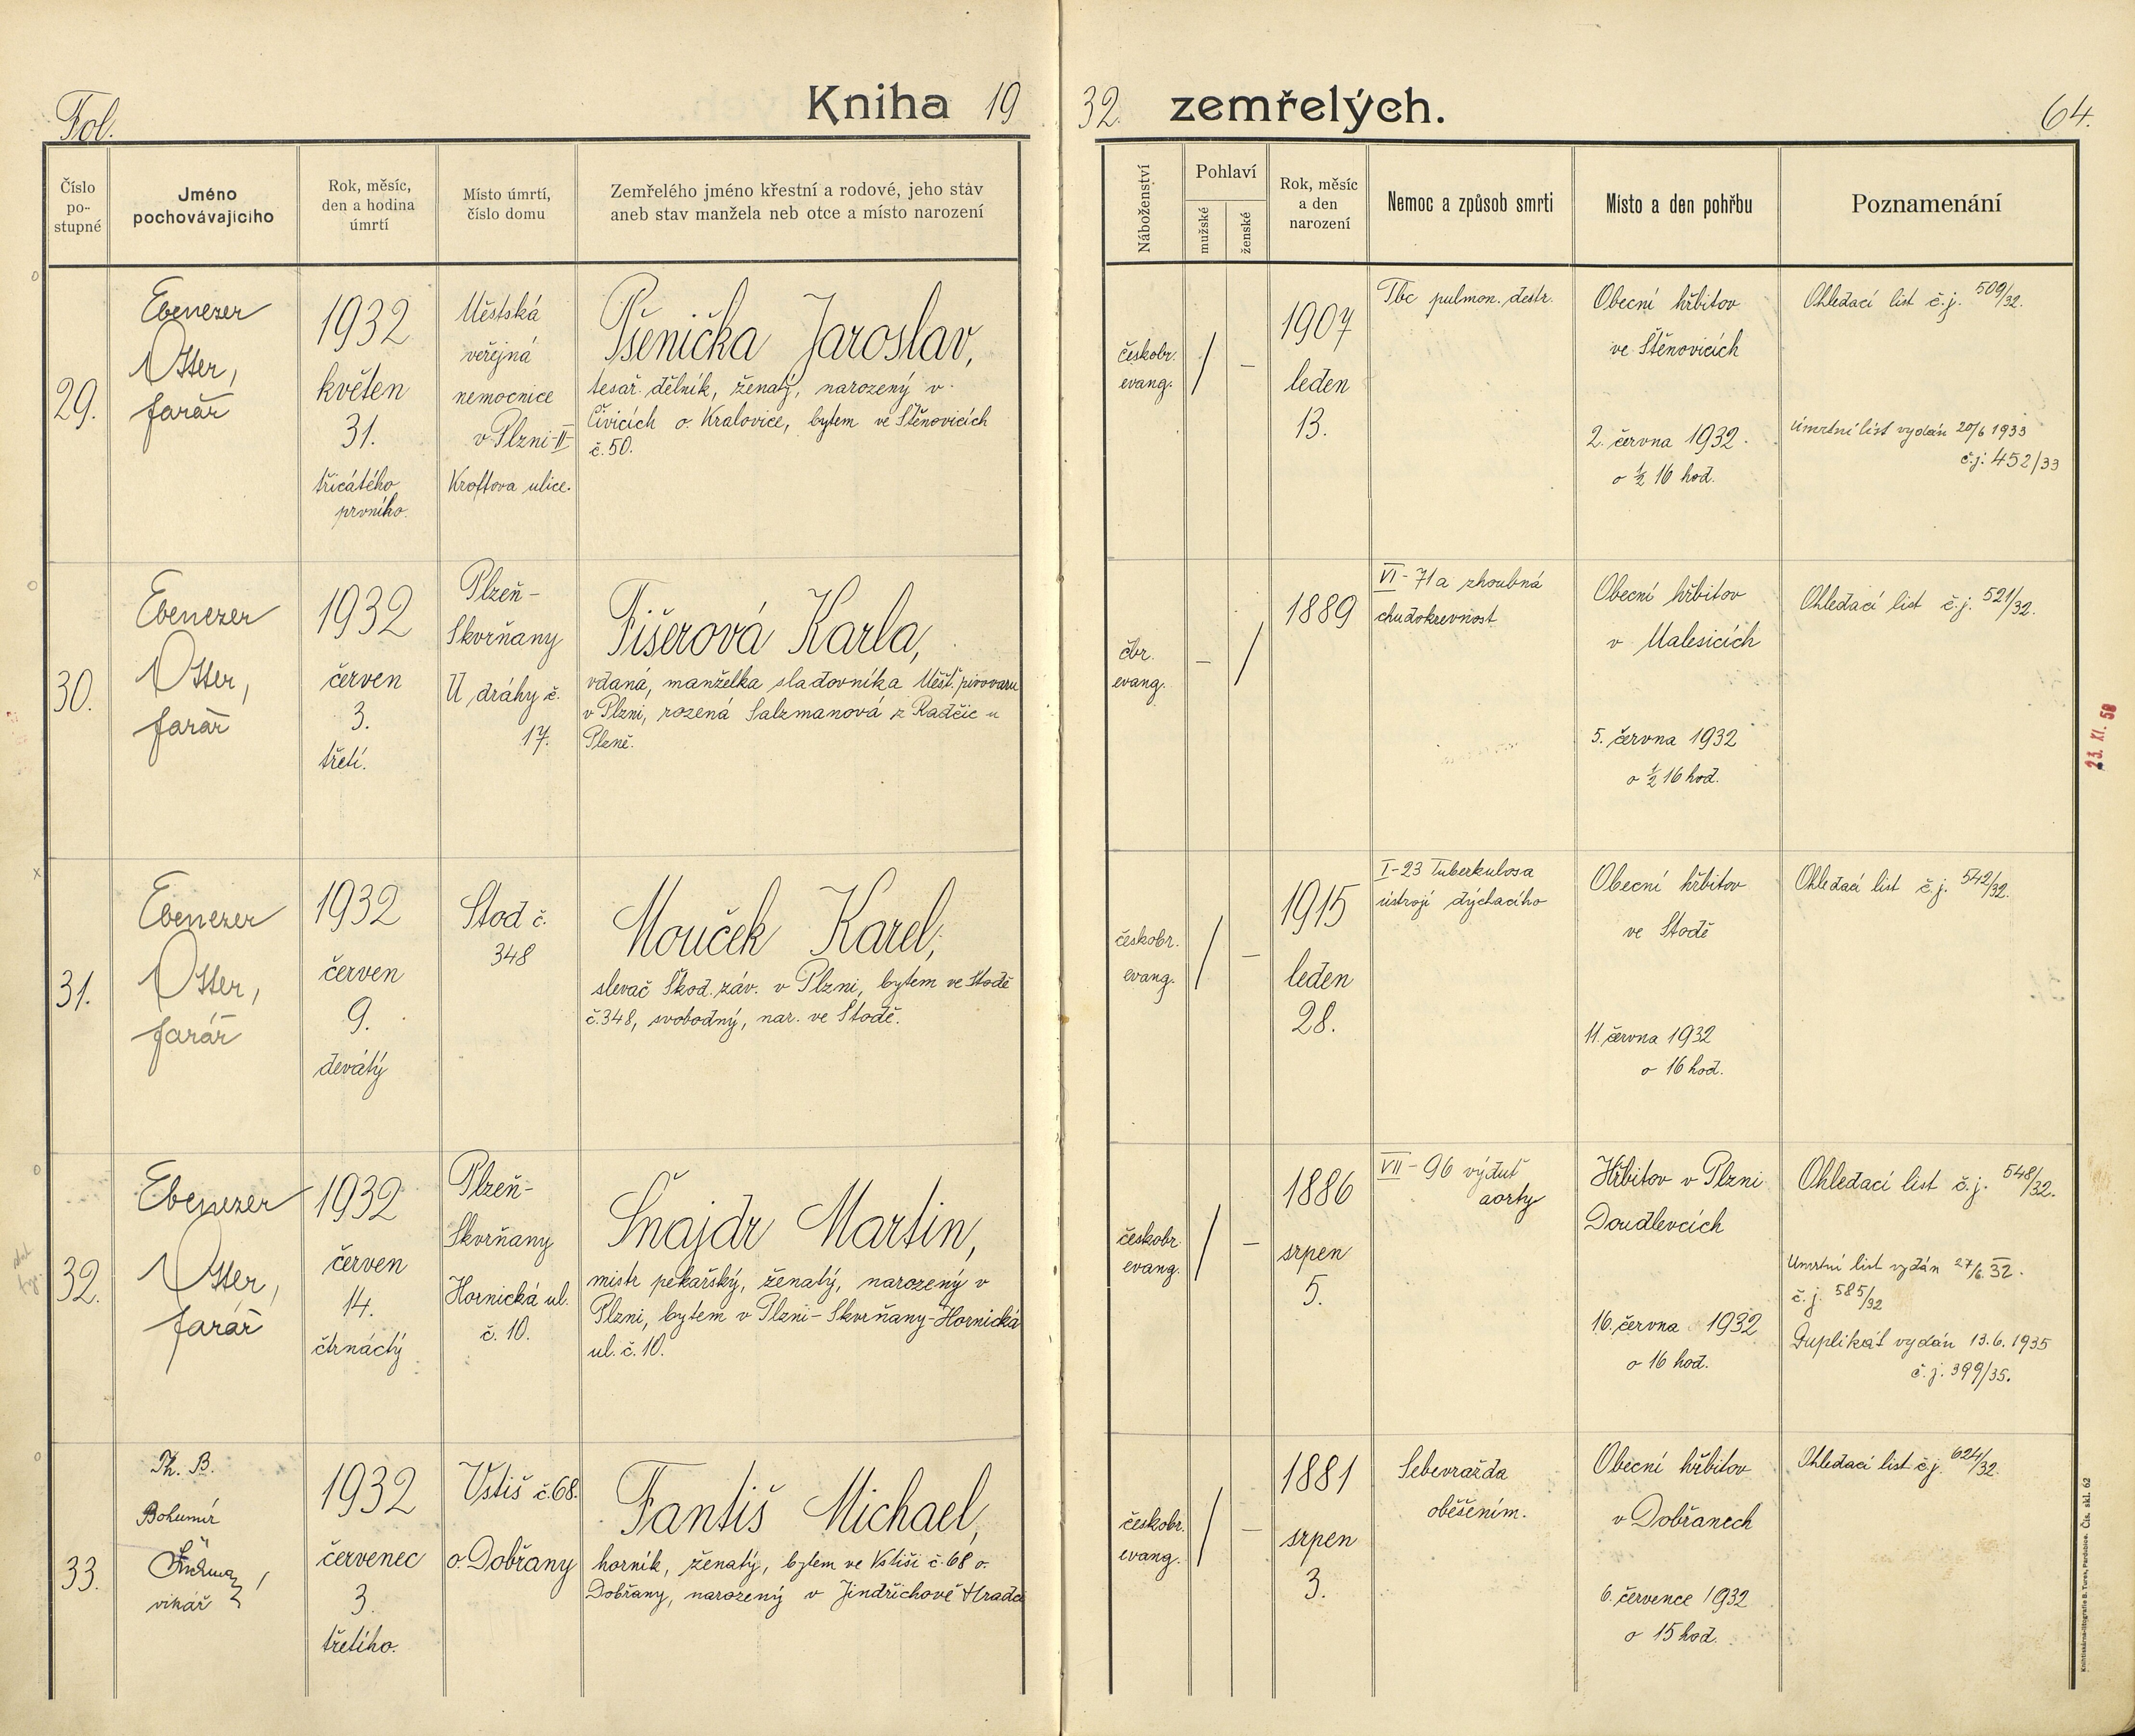 Fol.
Kniha 19
32. zemřelých.
64.
Číslo
po-
stupné
Jméno
pochovávajícího
Rok, měsíc,
den a hodina
úmrtí
Místo úmrtí,
číslo domu
Zemřelého jméno křestní a rodové, jeho stav
aneb stav manžela neb otce a místo narození
Náboženství
Pohlaví
mužské
ženské
Rok, měsíc
a den
narození
Nemoc a způsob smrti
Místo a den pohřbu
Poznamenání
29.
Ebenezer
Otter,
farář
1932
květen
31.
třicátého
prvního.
Městská
veřejná
nemocnice
v Plzni-II-
Kroftova ulice.
Pšenička Jaroslav,
tesař. dělník, ženatý, narozený v
Čivicích o. Kralovice, bytem ve Štěnovicích
č. 50.
českobr.
evang.
/
–
1907
leden
13.
Tbc pulmon. destr.
Obecní hřbitov
ve Štěnovicích
2. června 1932.
o ½ 16 hod.
Ohledací list č.j. 509/32.
Úmrtní list vydán 20/6 1933
č.j. 452/33
30.
Ebenezer
Otter,
farář
1932
červen
3.
třetí.
Plzeň-
Skvrňany
U dráhy č.
17.
Fišerová Karla,
vdaná, manželka sladovníka Měšť. pivovaru
v Plzni, rozená Salzmanová z Radčic u
Plzně.
čbr.
evang.
–
/
1889
VI - 71a zhoubná
chudokrevnost
Obecní hřbitov
v Malesicích
5. června 1932
o ½ 16 hod.
Ohledací list č.j. 521/32.
23. XI. 58
31.
Ebenezer
Otter,
farář
1932
červen
9.
devátý
Stod č.
348
Mouček Karel,
slevač Škod. záv. v Plzni, bytem ve Stodě
č. 348, svobodný, nar. ve Stodě.
českobr.
evang.
/
–
1915
leden
28.
I-23 Tuberkulosa
ústrojí dýchacího
Obecní hřbitov
ve Stodě
11. června 1932
o 16 hod.
Ohledací list č.j. 542/32.
32.
Ebenezer
Otter,
farář
1932
červen
14.
čtrnáctý
Plzeň-
Skvrňany
Hornická ul.
č. 10.
Šnajdr Martin,
mistr pekařský, ženatý, narozený v
Plzni, bytem v Plzni-Skvrňany-Hornická
ul. č. 10.
českobr.
evang.
/
–
1886
srpen
5.
VII - 96 výduť
aorty
Hřbitov v Plzni
Doudlevcích
16. června 1932
o 16 hod.
Ohledací list č.j. 548/32.
Úmrtní list vydán 27/6. 32.
č.j. 585/32
Duplikát vydán 13.6.1935
č.j. 399/35.
33.
Th. B.
Bohumír
vikář
1932
červenec
3.
třetího.
Vstiš č. 68.
o. Dobřany
Fantiš Michael,
horník, ženatý, bytem ve Vstiši č. 68 o.
Dobřany, narozený v Jindřichově Hradci
českobr.
evang.
/
–
1881
srpen
3.
Sebevražda
oběšením.
Obecní hřbitov
v Dobřanech
6. července 1932
o 15 hod.
Ohledací list č.j. 624/32.
Knihtiskárna-litografie B. Turex, Pardubice. Čís. skl. 62